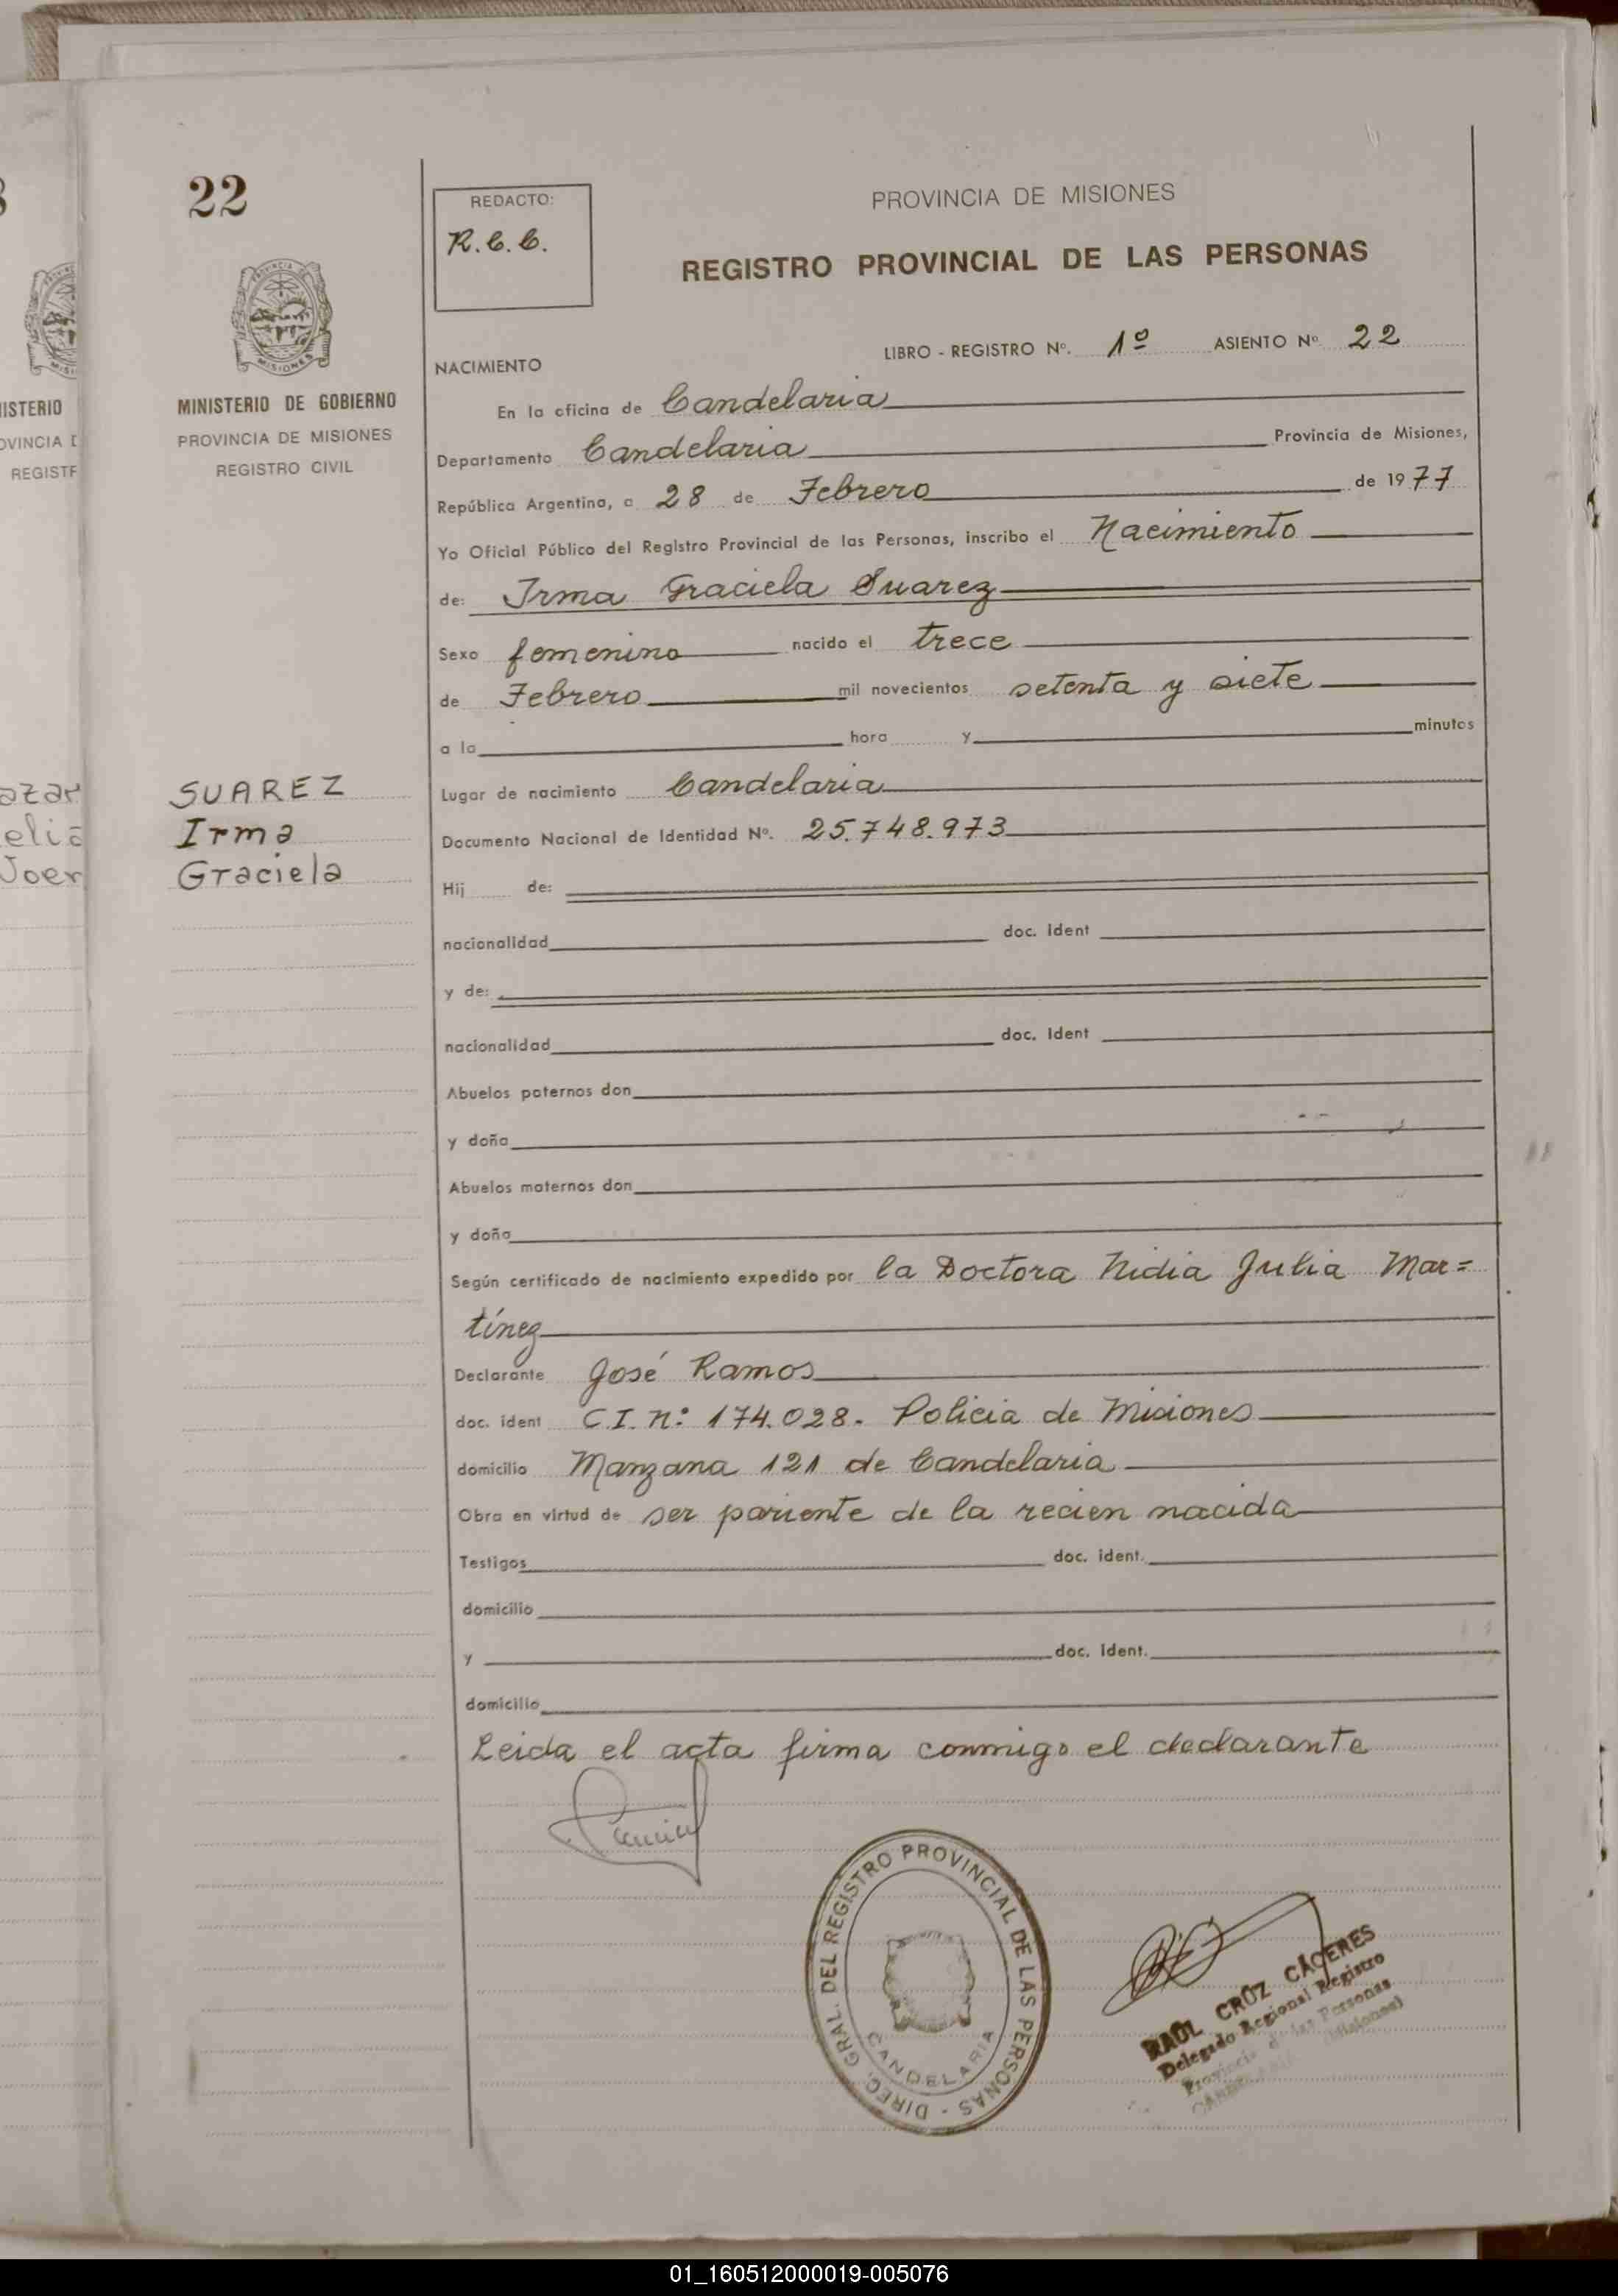 22
MINISTERIO DE GOBIERNO
PROVINCIA DE MISIONES
REGISTRO CIVIL
SUAREZ
Irma
Graciela
REDACTO:
R.C.C.
PROVINCIA DE MISIONES
REGISTRO PROVINCIAL DE LAS PERSONAS
LIBRO - REGISTRO Nº. 1º ASIENTO Nº 22
NACIMIENTO
En la oficina de Candelaria
Departamento Candelaria Provincia de Misiones,
República Argentina, a 28 de Febrero de 1977
Yo Oficial Público del Registro Provincial de las Personas, inscribo el Nacimiento
de: Irma Graciela Suarez
Sexo femenino nacido el trece
de Febrero mil novecientos setenta y siete
a la hora y minutos
Lugar de nacimiento Candelaria
Documento Nacional de Identidad Nº. 25.748.973
Hij de:
nacionalidad doc. Ident
y de:
nacionalidad doc. Ident
Abuelos paternos don
y doña
Abuelos maternos don
y doña
Según certificado de nacimiento expedido por la Doctora Nidia Julia Mar=
tínez
Declarante José Ramos
doc. ident C.I. n: 174.028. Policia de Misiones
domicilio Manzana 121 de Candelaria
Obra en virtud de ser pariente de la recien nacida
Testigos doc. ident.
domicilio
y doc. Ident.
domicilio
Leida el acta firma conmigo el declarante
DIREC. GRAL. DEL REGISTRO PROVINCIAL DE LAS PERSONAS -
CANDELARIA
RAÚL CRÚZ CÁCERES
Delegado Regional Registro
Provincia de las Personas
(Misiones)
ISTERIO
OVINCIA D
REGISTR
azar
elia
Joer
01_160512000019-005076